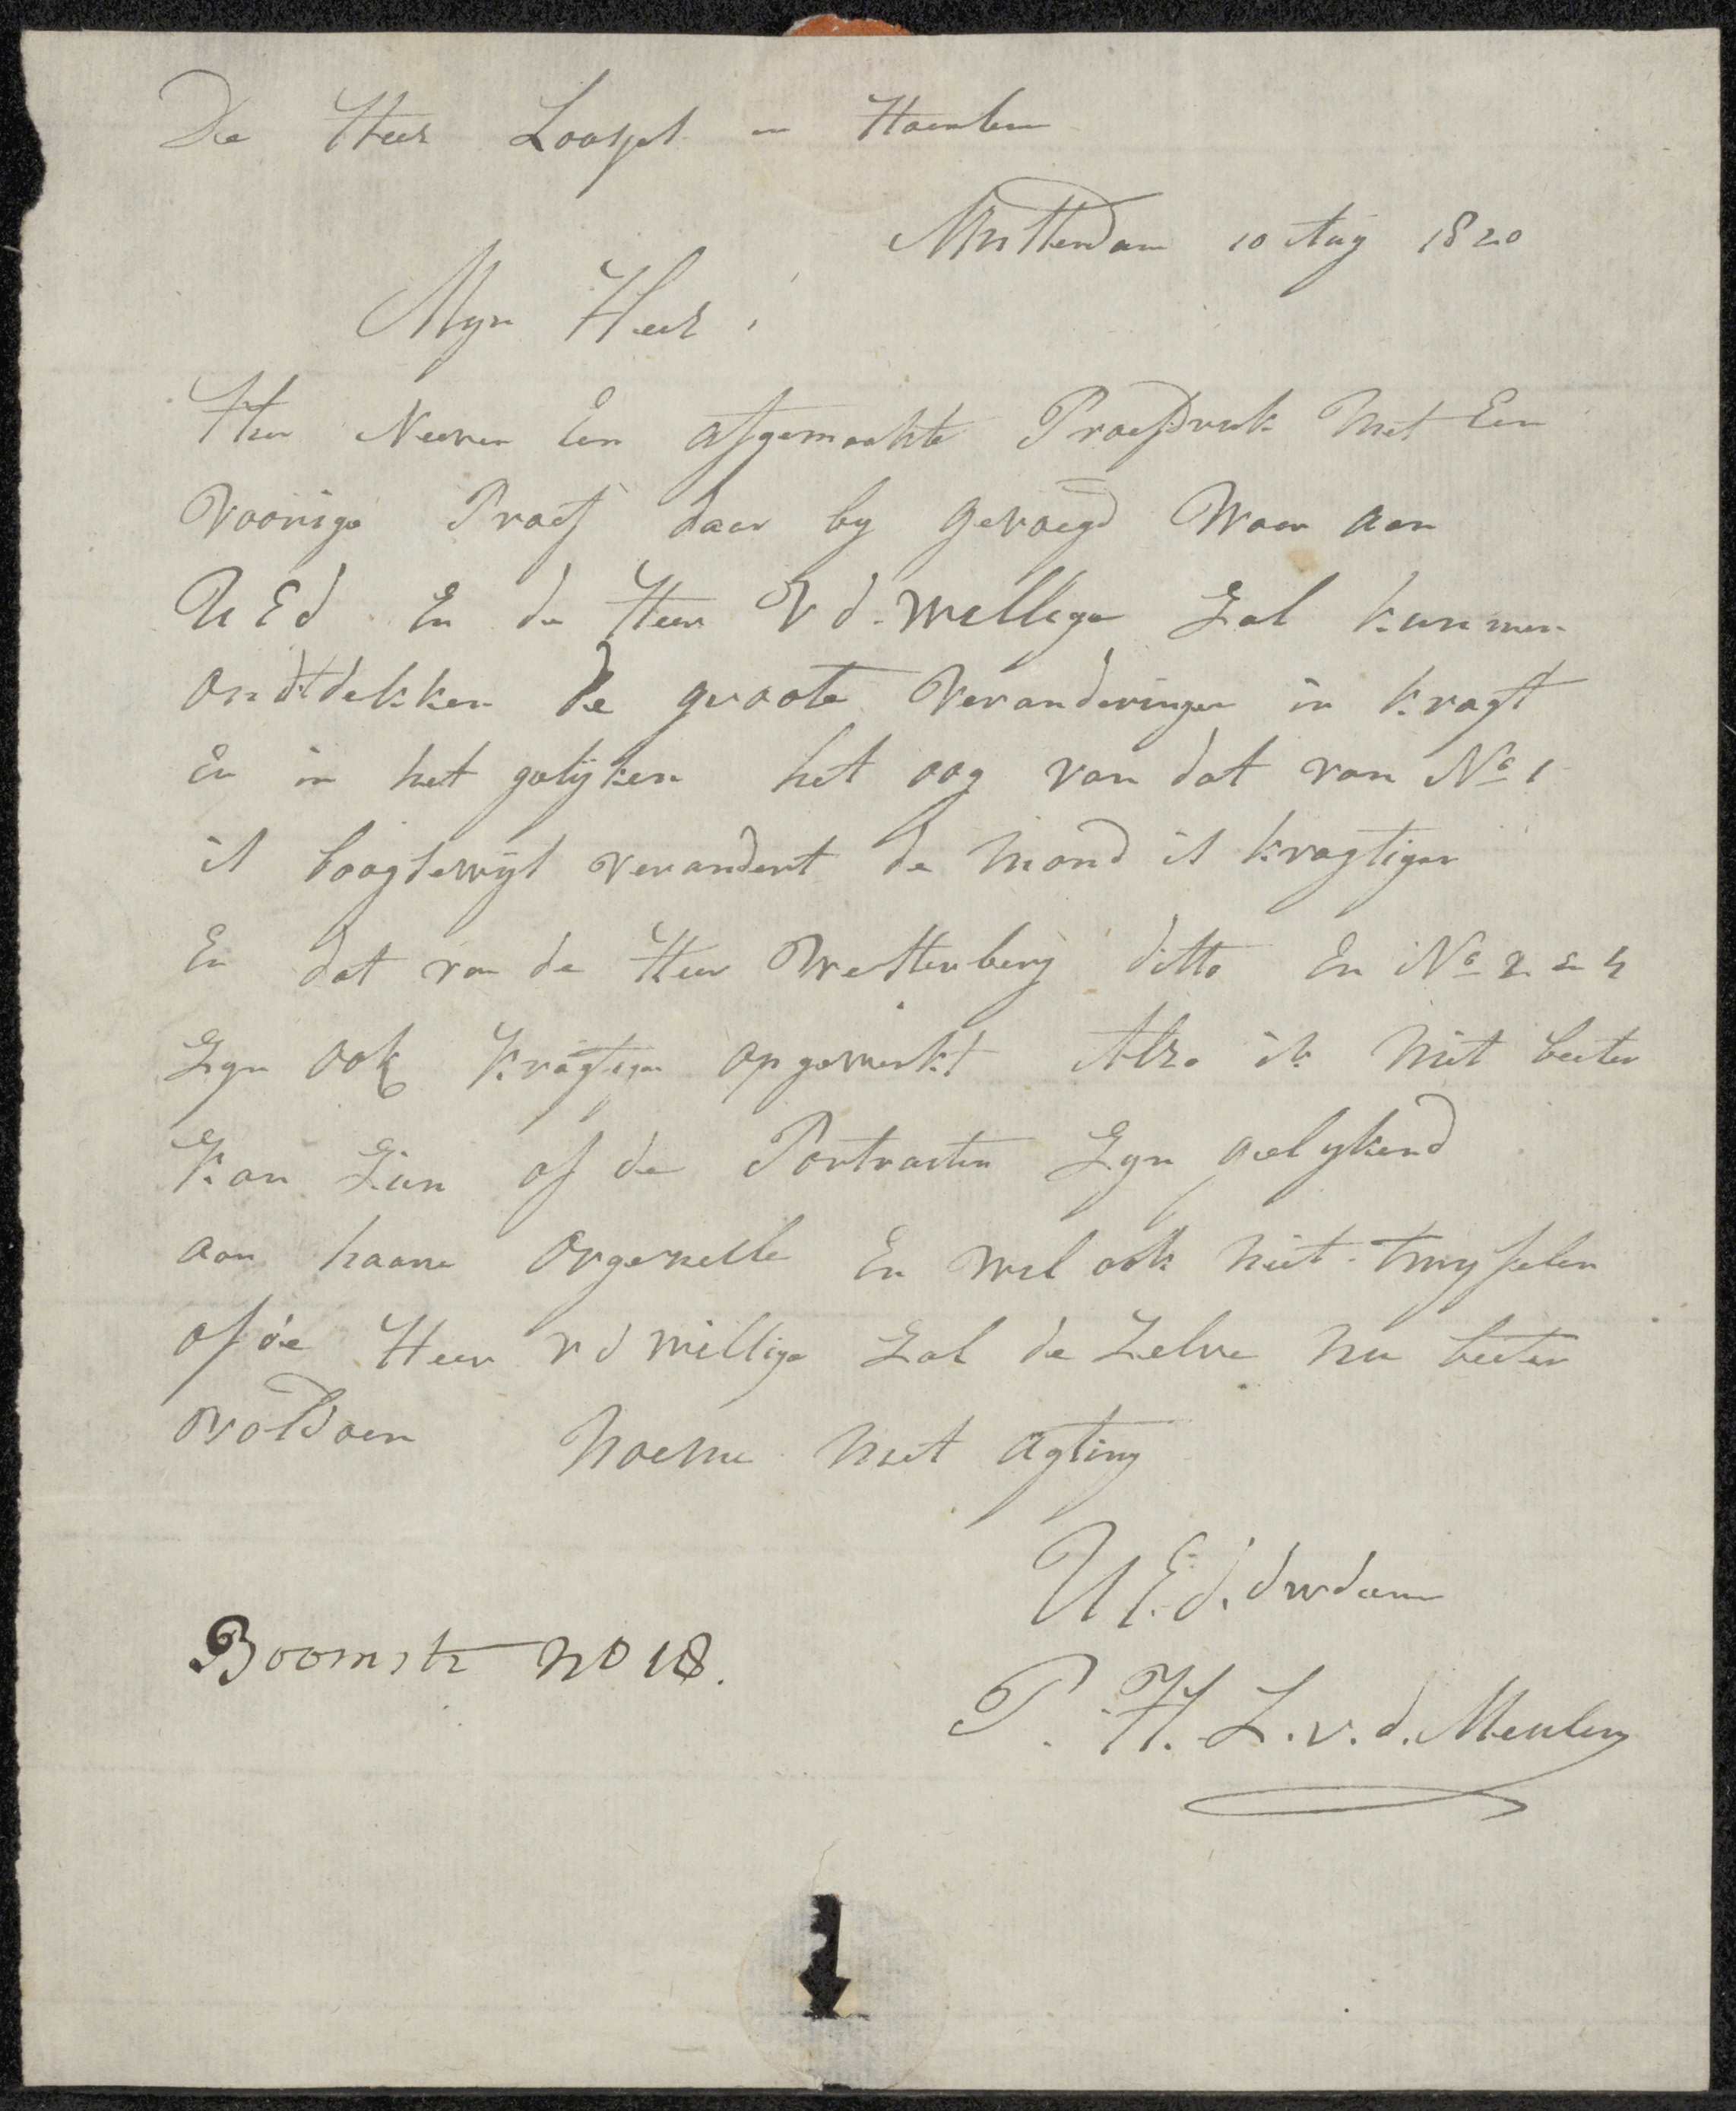 De Heer Loosjes in Haerlem
Amsterdam 10 Aug 1820
Myn Heer!
Hier Neeven Een afgemaakte Proefdruk Met Een
Voorige Proef daer by gevoegd Waer aen
UEd En de Heer V d. Willige Zal kunnen
ontdekken de groote Veranderingen in kragt
En in het gelyken het oog van dat van No 1
is boogsewys verandert de Mond is kragtiger
En dat van de Heer Westenberg ditto En No 2 en 4
Zyn ook kragtiger opgewerkt Alzo ik Niet beeter
kan Zien of de Portraiten Zyn gelykend
aan haare orgeneele En wil ook niet twyfelen
of de Heer v d willige Zal de Zelve nu beeter
voldoen Noeme met agting
UEd. dw daen
P. H. L. v. d. Meulen
Boomstr no 18.